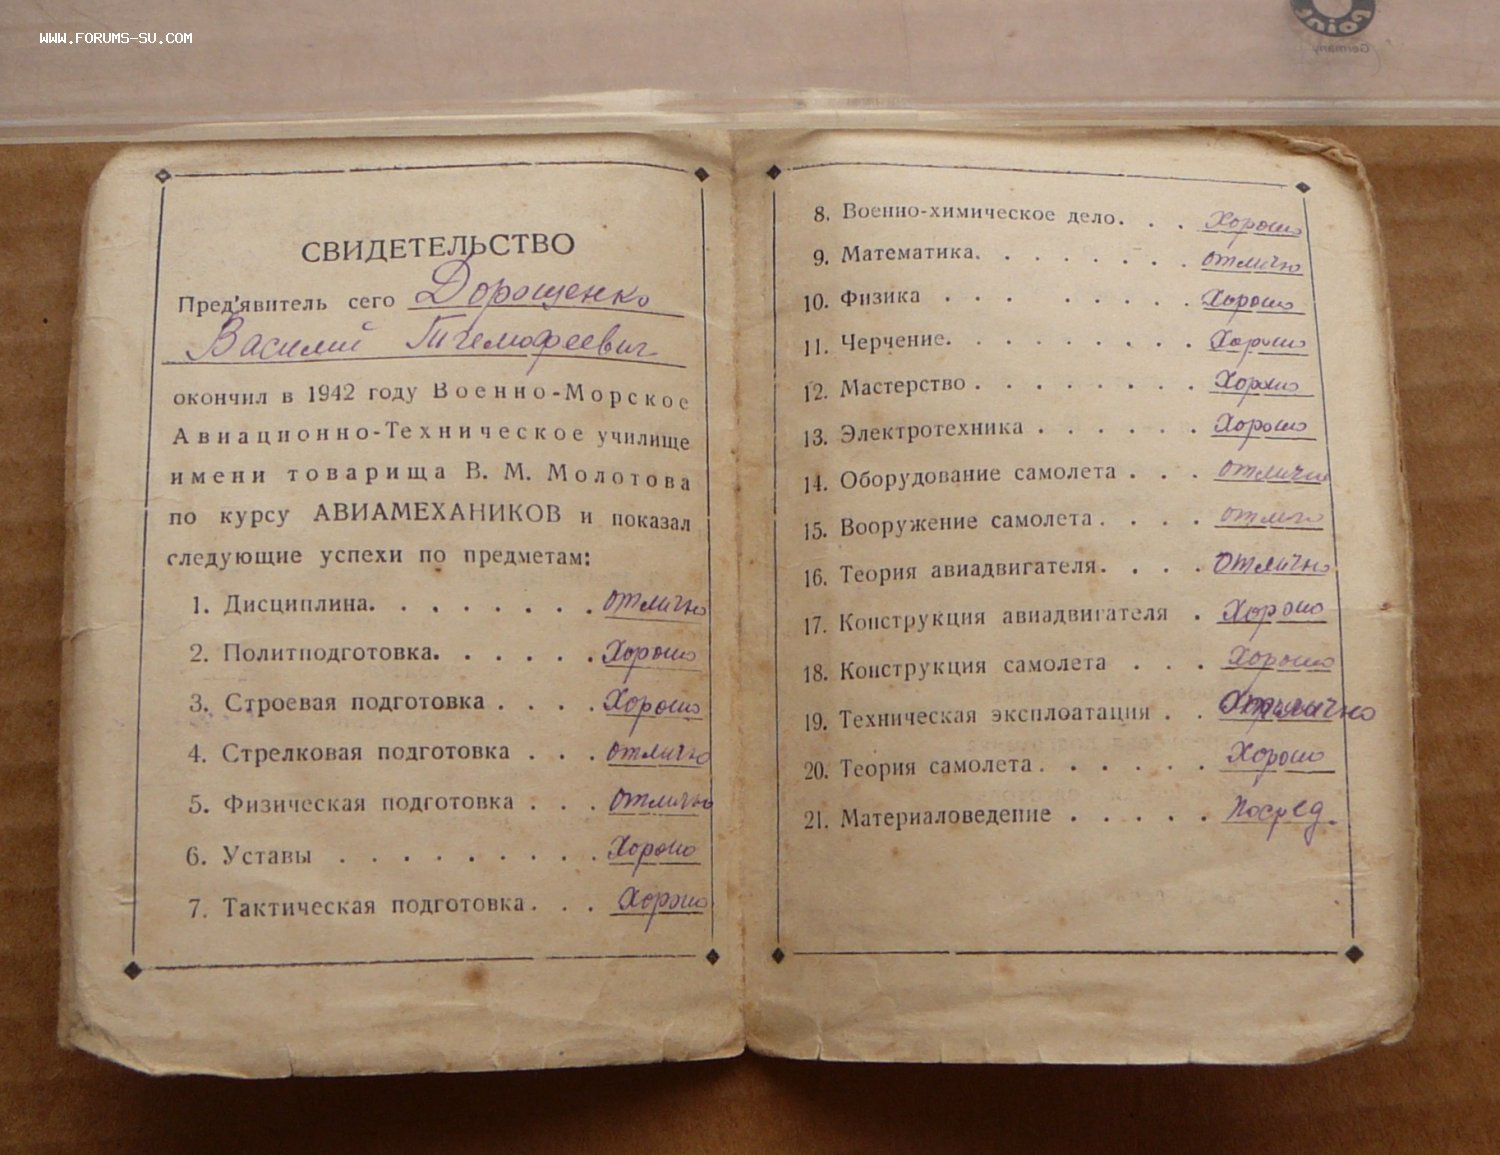 WWW.FORUMS-SU.COM
point
Germany
СВИДЕТЕЛЬСТВО
Пред'явитель сего Дорощенко
Василий Тимофеевич
окончил в 1942 году Военно-Морское
Авиационно-Техническое училище
имени товарища В. М. Молотова
по курсу АВИАМЕХАНИКОВ и показал
следующие успехи по предметам:
1. Дисциплина. . . . . . . . отлично
2. Политподготовка. . . . . . Хорошо
3. Строевая подготовка . . . . Хорошо
4. Стрелковая подготовка . . . отлично
5. Физическая подготовка . . . отлично
6. Уставы . . . . . . . . . Хорошо
7. Тактическая подготовка. . . Хорошо
8. Военно-химическое дело. . . Хорошо
9. Математика. . . . . . . отлично
10. Физика . . . . . . . . Хорошо
11. Черчение. . . . . . . . . Хорошо
12. Мастерство . . . . . . . . Хорошо
13. Электротехника . . . . . . Хорошо
14. Оборудование самолета . . . отлично
15. Вооружение самолета . . . . отлично
16. Теория авиадвигателя. . . . Отлично
17. Конструкция авиадвигателя . Хорошо
18. Конструкция самолета . . . Хорошо
19. Техническая эксплоатация . . Отлично
20. Теория самолета . . . . . . Хорошо
21. Материаловедение . . . . . Посред.